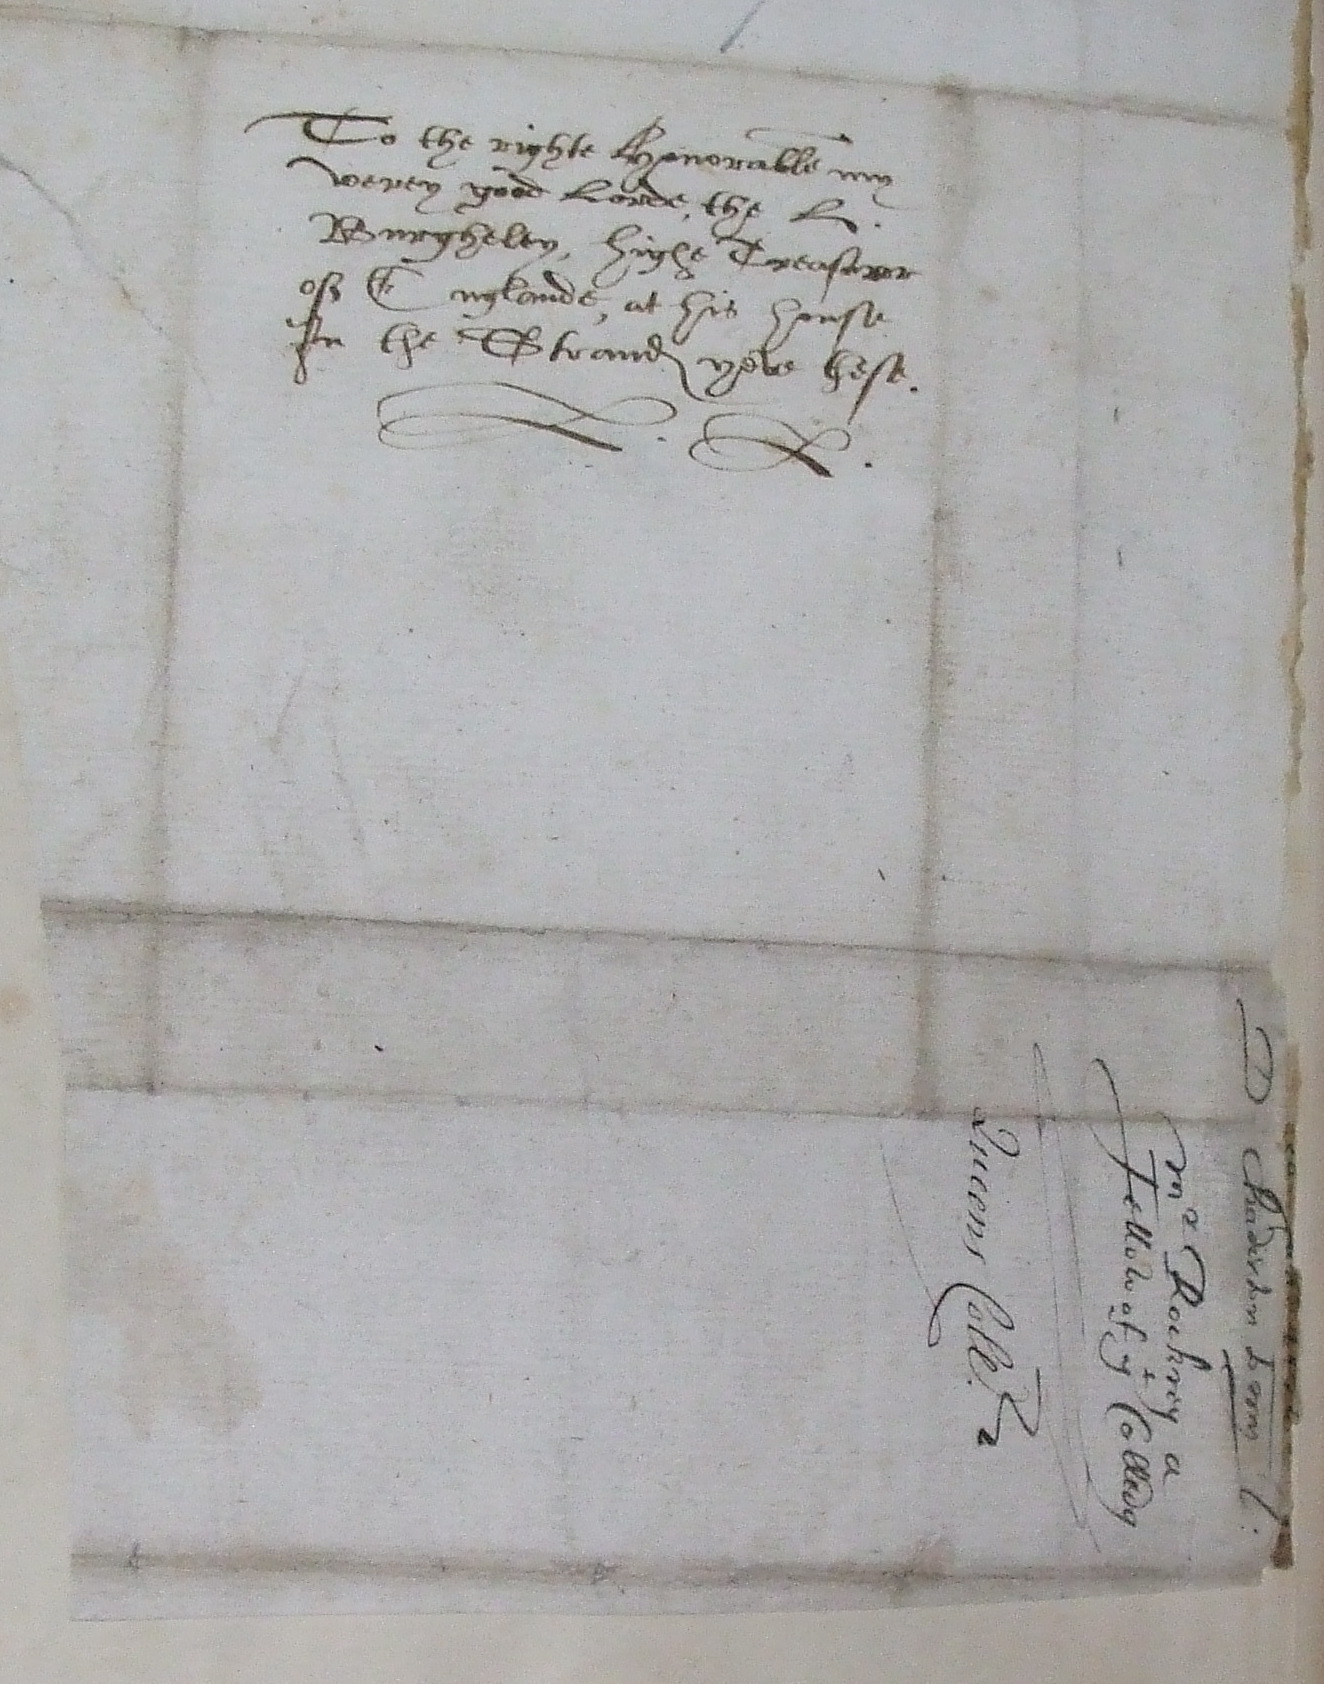 To the righte Honorable my
verey good Lorde, the L.
Burgheley, highe Treasorer
off Englande, at his house
In the Strand yeve these.
D Chaderton
mr Rockrey a
Fellow of yt Colledg
Queens Coll.